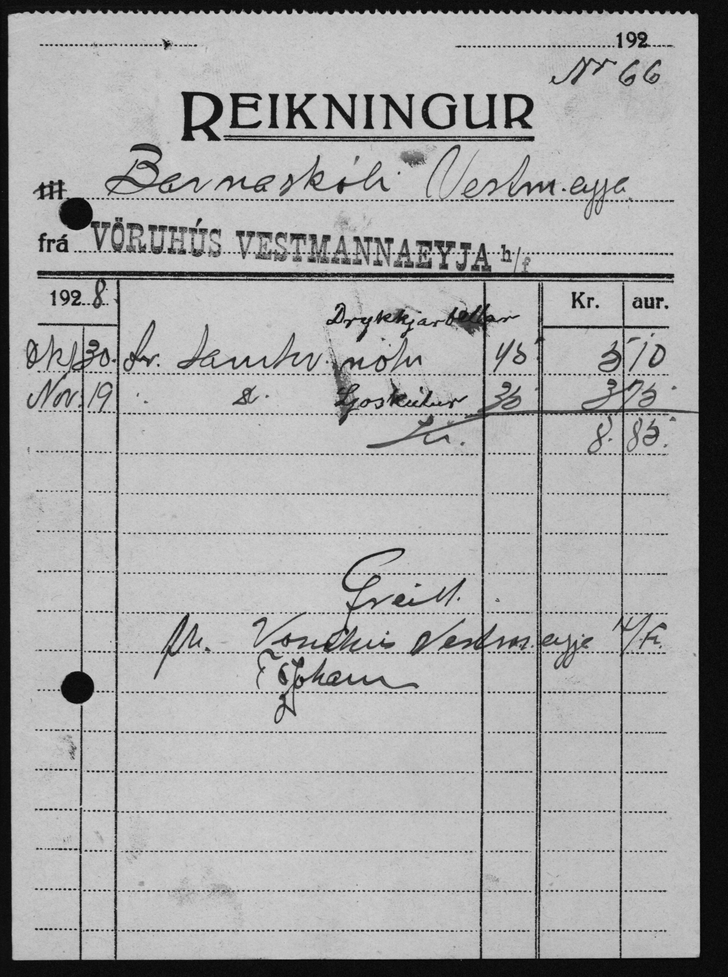 192
Nr 66
REIKNINGUR
til Barnaskóli Vestm.eyja
frá VÖRUHÚS VESTMANNAEYJA h/f
1928. Kr. aur.
Drykkjarbollar
Okt 30. Sv. samkv. nótu 45 5 10
Nov. 19 " " Ljoskúlur 35 3 75
Kr. 8. 85.
Greitt.
pr. Vöruhús Vestm.eyja h/f.
Johann